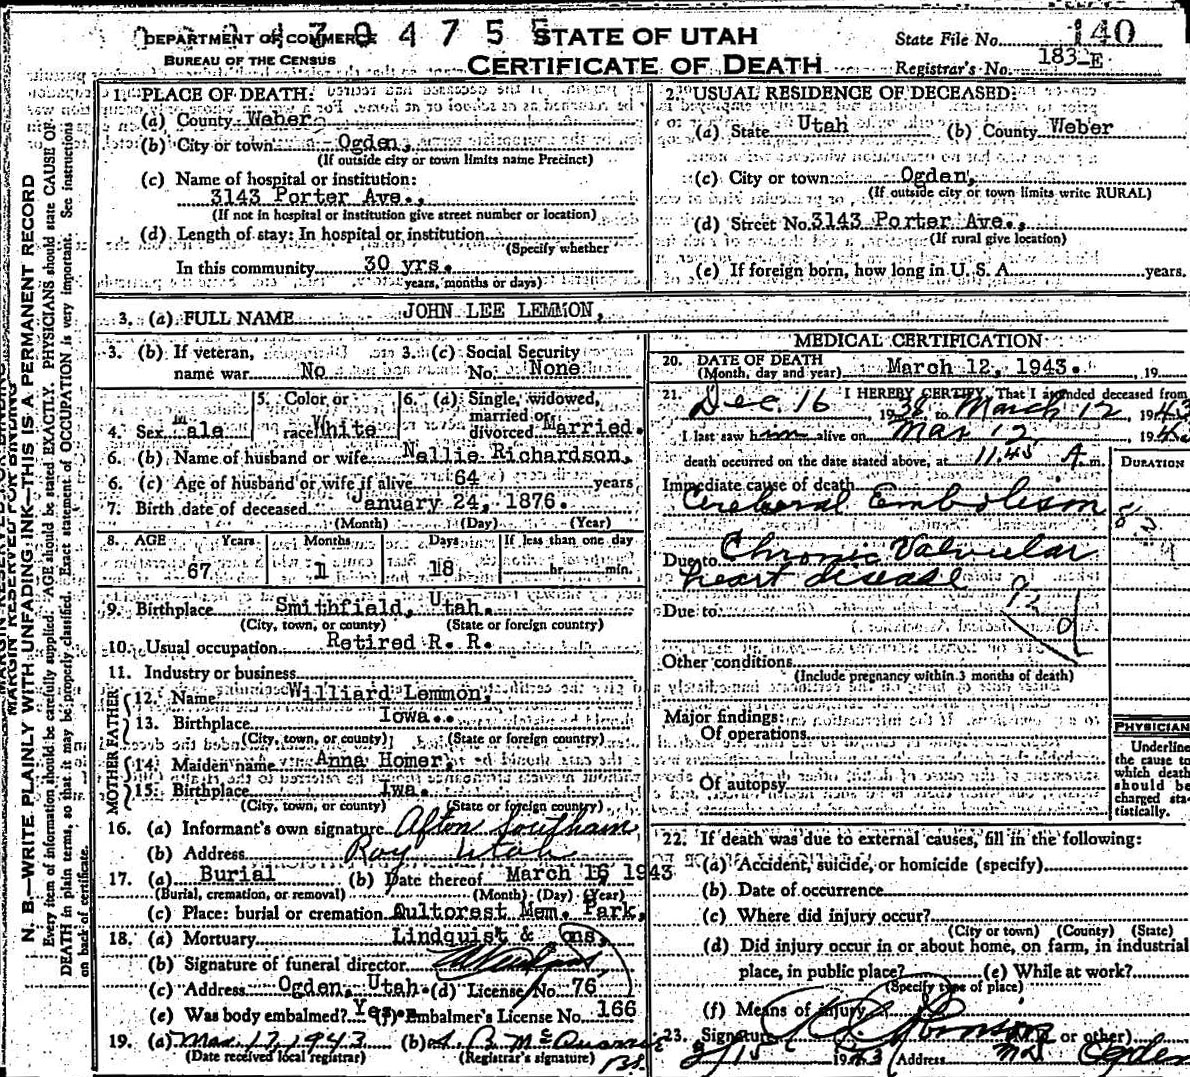 DEPARTMENT OF COMMERCE
BUREAU OF THE CENSUS
4 7 5 5
STATE OF UTAH
CERTIFICATE OF DEATH
State File No. 140
Registrar's No. 183-E
N. B.—WRITE PLAINLY WITH UNFADING INK—THIS IS A PERMANENT RECORD
MARGIN RESERVED FOR BINDING
Every item of information should be carefully supplied. AGE should be stated EXACTLY. PHYSICIANS should state CAUSE OF
DEATH in plain terms, so that it may be properly classified. Exact statement of OCCUPATION is very important. See instructions
on back of certificate.
1. PLACE OF DEATH:
(a) County Weber
(b) City or town Ogden,
(If outside city or town limits name Precinct)
(c) Name of hospital or institution:
3143 Porter Ave.,
(If not in hospital or institution give street number or location)
(d) Length of stay: In hospital or institution
(Specify whether
In this community 30 yrs.
years, months or days)
2. USUAL RESIDENCE OF DECEASED:
(a) State Utah (b) County Weber
(c) City or town Ogden,
(If outside city or town limits write RURAL)
(d) Street No. 3143 Porter Ave.,
(If rural give location)
(e) If foreign born, how long in U. S. A. years.
3. (a) FULL NAME JOHN LEE LEMMON,
3. (b) If veteran, 3. (c) Social Security
name war No No. None
4. Sex Male
5. Color or
race White
6. (a) Single, widowed,
married or
divorced Married.
6. (b) Name of husband or wife Nellie Richardson,
6. (c) Age of husband or wife if alive 64 years
7. Birth date of deceased January 24, 1876.
(Month) (Day) (Year)
8. AGE Years Months Days If less than one day
67 1 18 hr. min.
9. Birthplace Smithfield, Utah.
(City, town, or county) (State or foreign country)
10. Usual occupation Retired R. R.
11. Industry or business
FATHER
12. Name Williard Lemmon,
13. Birthplace Iowa..
(City, town, or county) (State or foreign country)
MOTHER
14. Maiden name Anna Homer,
15. Birthplace Iwa.
(City, town, or county) (State or foreign country)
16. (a) Informant's own signature Afton Southam
(b) Address Roy Utah
17. (a) Burial (b) Date thereof March 16, 1943
(Burial, cremation, or removal) (Month) (Day) (Year)
(c) Place: burial or cremation Aultorest Mem. Park,
18. (a) Mortuary Lindquist & Sons,
(b) Signature of funeral director
(c) Address Ogden, Utah. (d) License No. 76
(e) Was body embalmed? Yes. (f) Embalmer's License No. 166
19. (a) Mar. 17, 1943 (b)
(Date received local registrar) (Registrar's signature)
MEDICAL CERTIFICATION
20. DATE OF DEATH
(Month, day and year) March 12, 1943. , 19
21. I HEREBY CERTIFY, That I attended deceased from
Dec. 16, 1938 to March 12, 1943
I last saw him alive on Mar 12, 194
death occurred on the date stated above, at 11.45 A. m.
DURATION
Immediate cause of death
Cerebral Embolism
Due to Chronic Valvular
heart disease
Due to
92 d
Other conditions
(Include pregnancy within 3 months of death)
Major findings:
Of operations
Of autopsy
PHYSICIAN
Underline
the cause to
which death
should be
charged sta-
tistically.
22. If death was due to external causes, fill in the following:
(a) Accident, suicide, or homicide (specify)
(b) Date of occurrence
(c) Where did injury occur?
(City or town) (County) (State)
(d) Did injury occur in or about home, on farm, in industrial
place, in public place? (e) While at work?
(Specify type of place)
(f) Means of injury
23. Signature (M.D. or other)
1943 Address Ogden